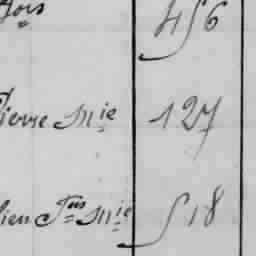 fois 456
Pierre Mie 127
lien Jns Mie 518